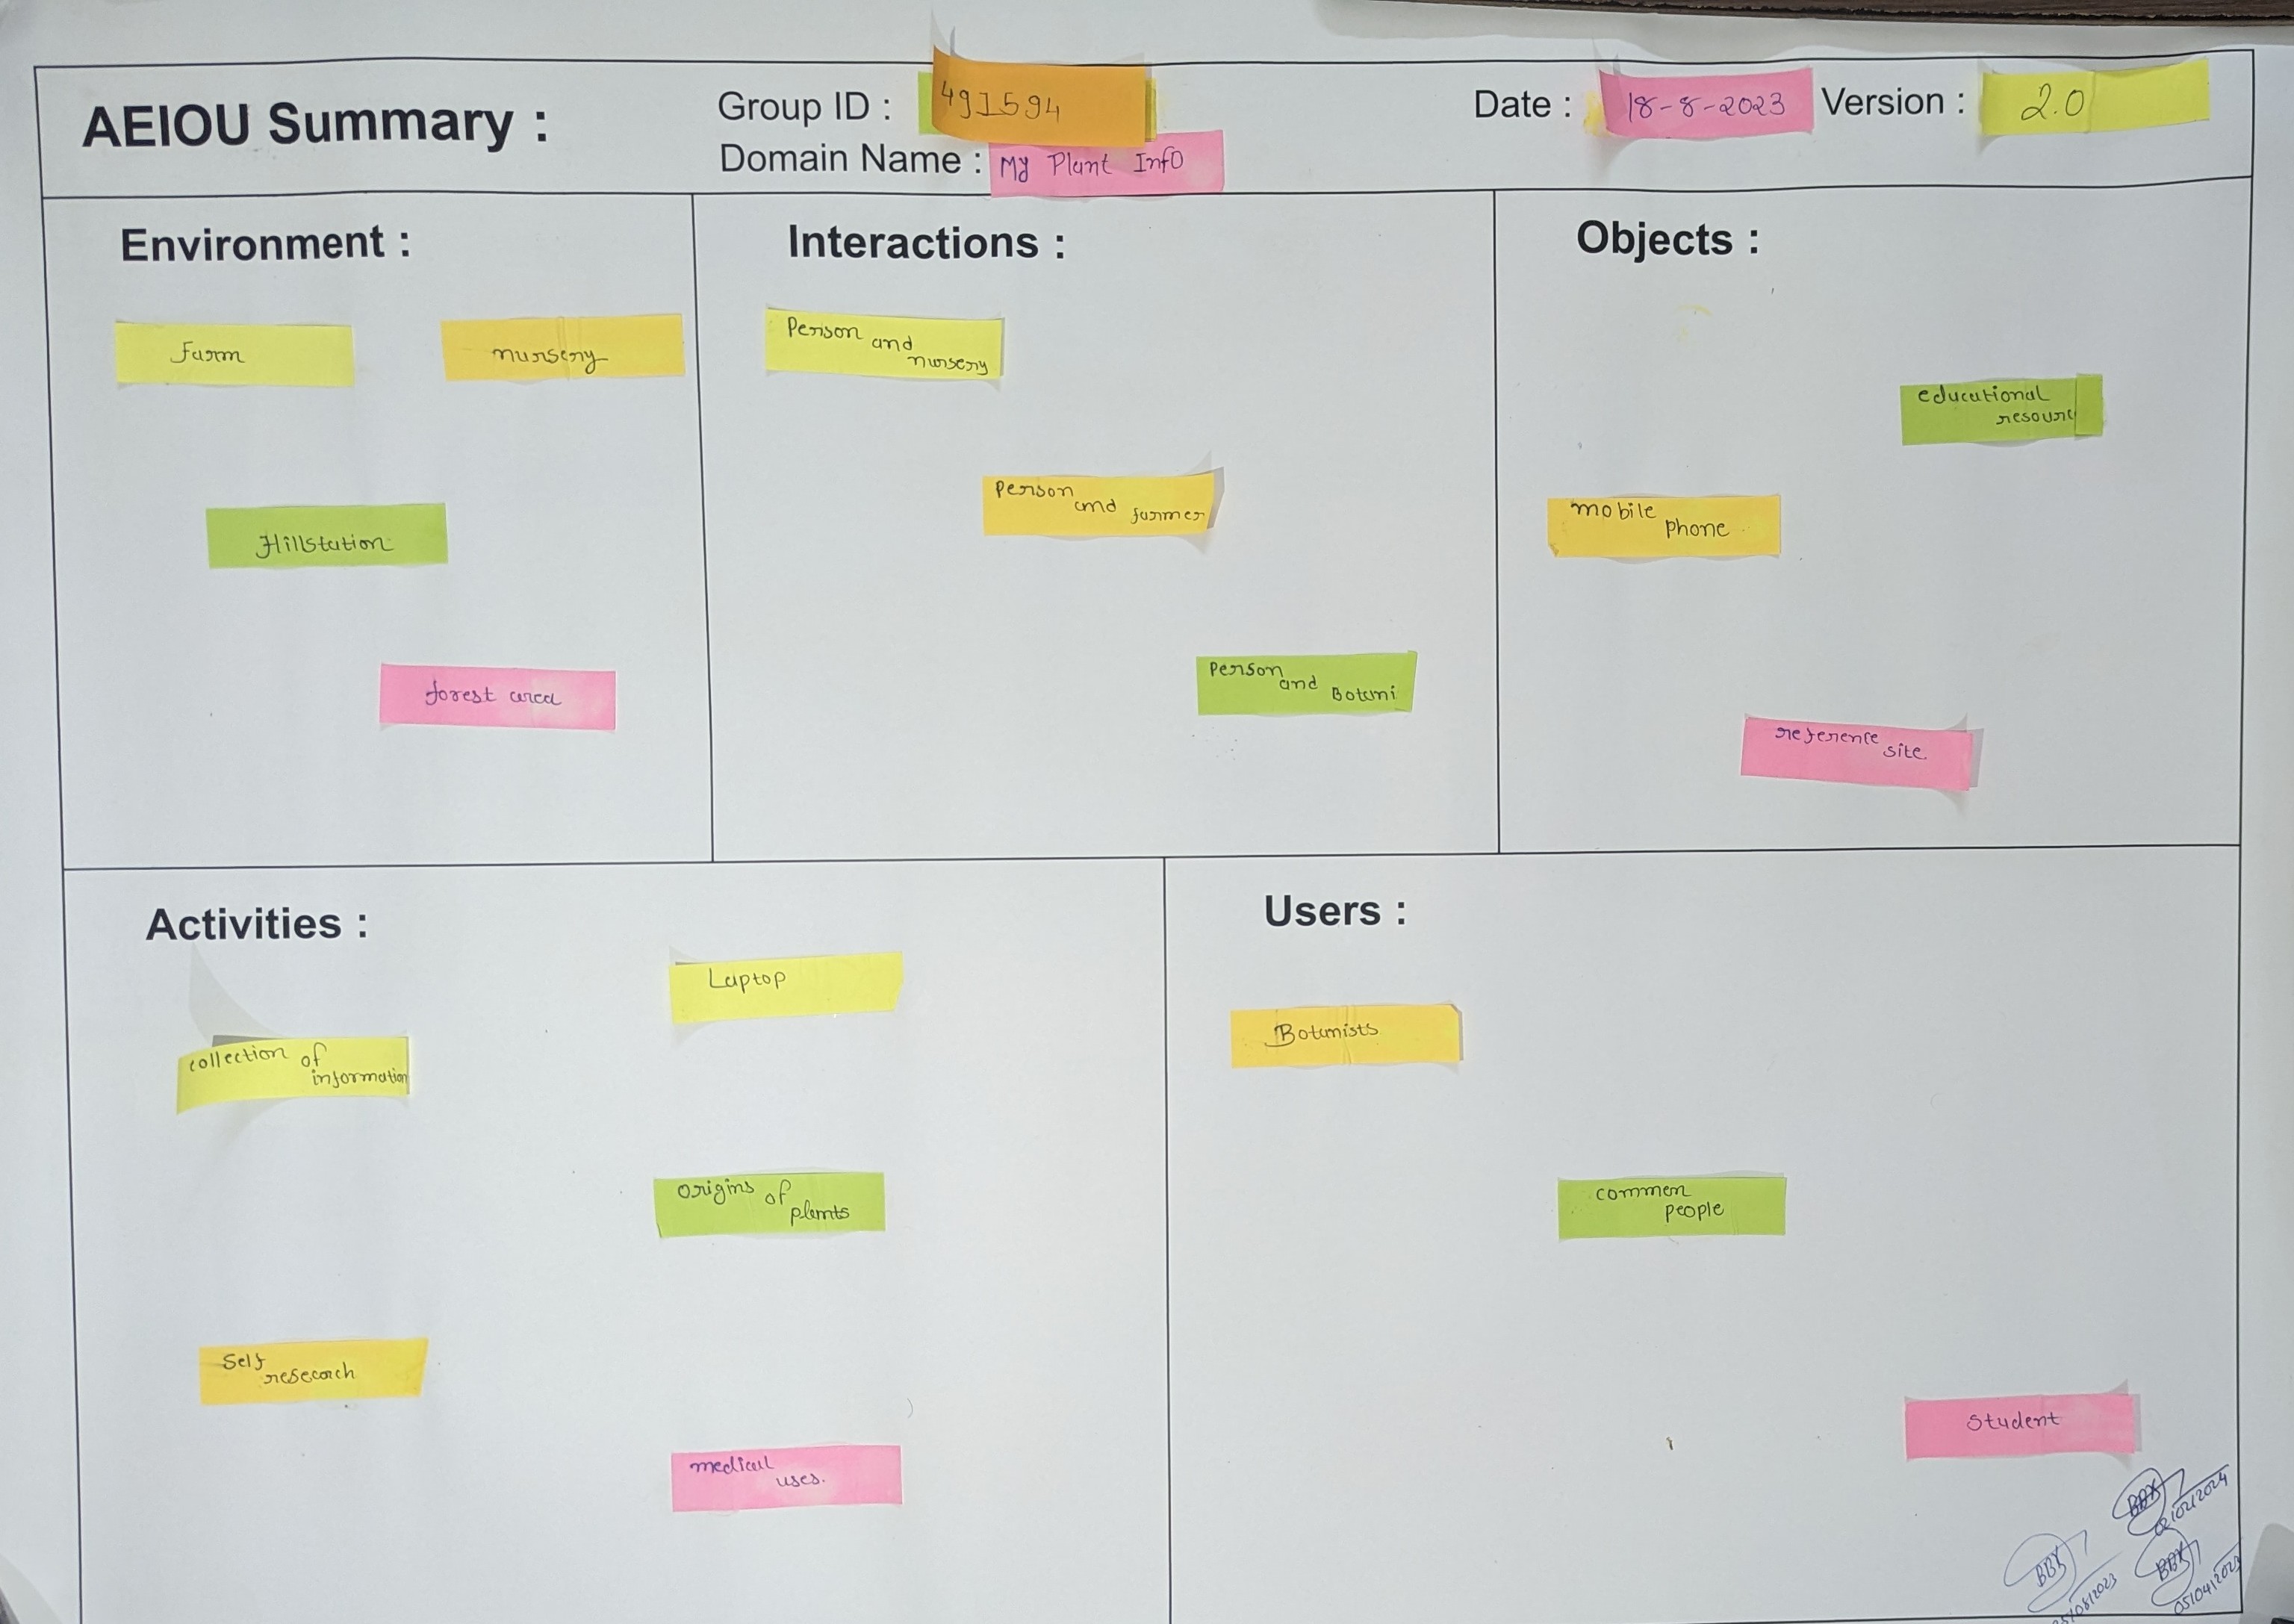 AEIOU Summary :
Group ID : 491594
Domain Name : My Plant Info
Date : 18-8-2023 Version : 2.0
Environment :
Farm
nursery
Hillstation
forest area
Interactions :
Person and
nursery
Person
and farmer
Person
and Botani
Objects :
educational
resourc
mobile
phone
reference
site
Activities :
Laptop
collection of
information
origins of
plants
Self
research
medical
uses.
Users :
Botanists
common
people
Student